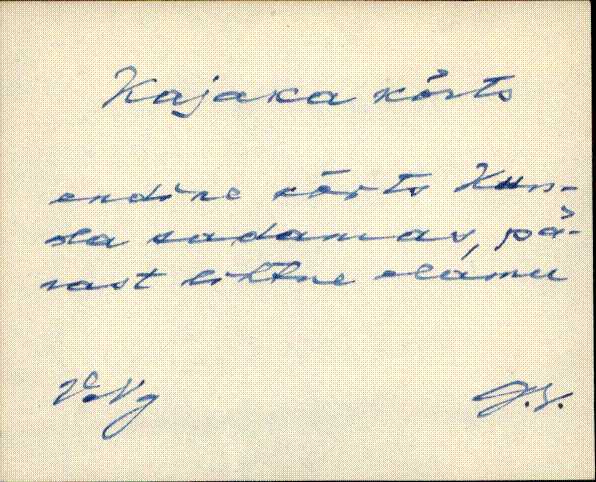 Kajaka kõrts
endine kõrts Kun-
da sadamas, pä-
rast lihtne elamu
V.Ng